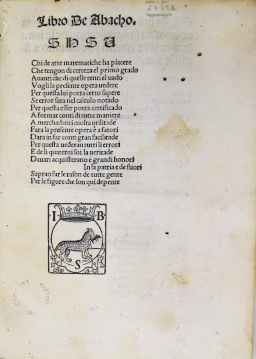 Libro De Abacho.
S N S V
Chi de arte matematiche ha piacere
Che tengon di certeza el primo grado
Auanti che di quelle tenti el uado
Vogli la presente opera uedere
Per questa lui potra certo sapere
Se error sara nel calculo notado
Per questa esser potra certificado
A formar conti di tutte maniere
A merchadanti molta utilitade
Fara la presente opera e a fatori
Dara in far conti gran facilitade
Per questa uederan tutti li errori
E de li quaterni soi la ueritade
Danari acquisterano e grandi honori
In la patria e de fuori
Sapran far le rason de tutte gente
Per le figure che son qui depente
I B
S